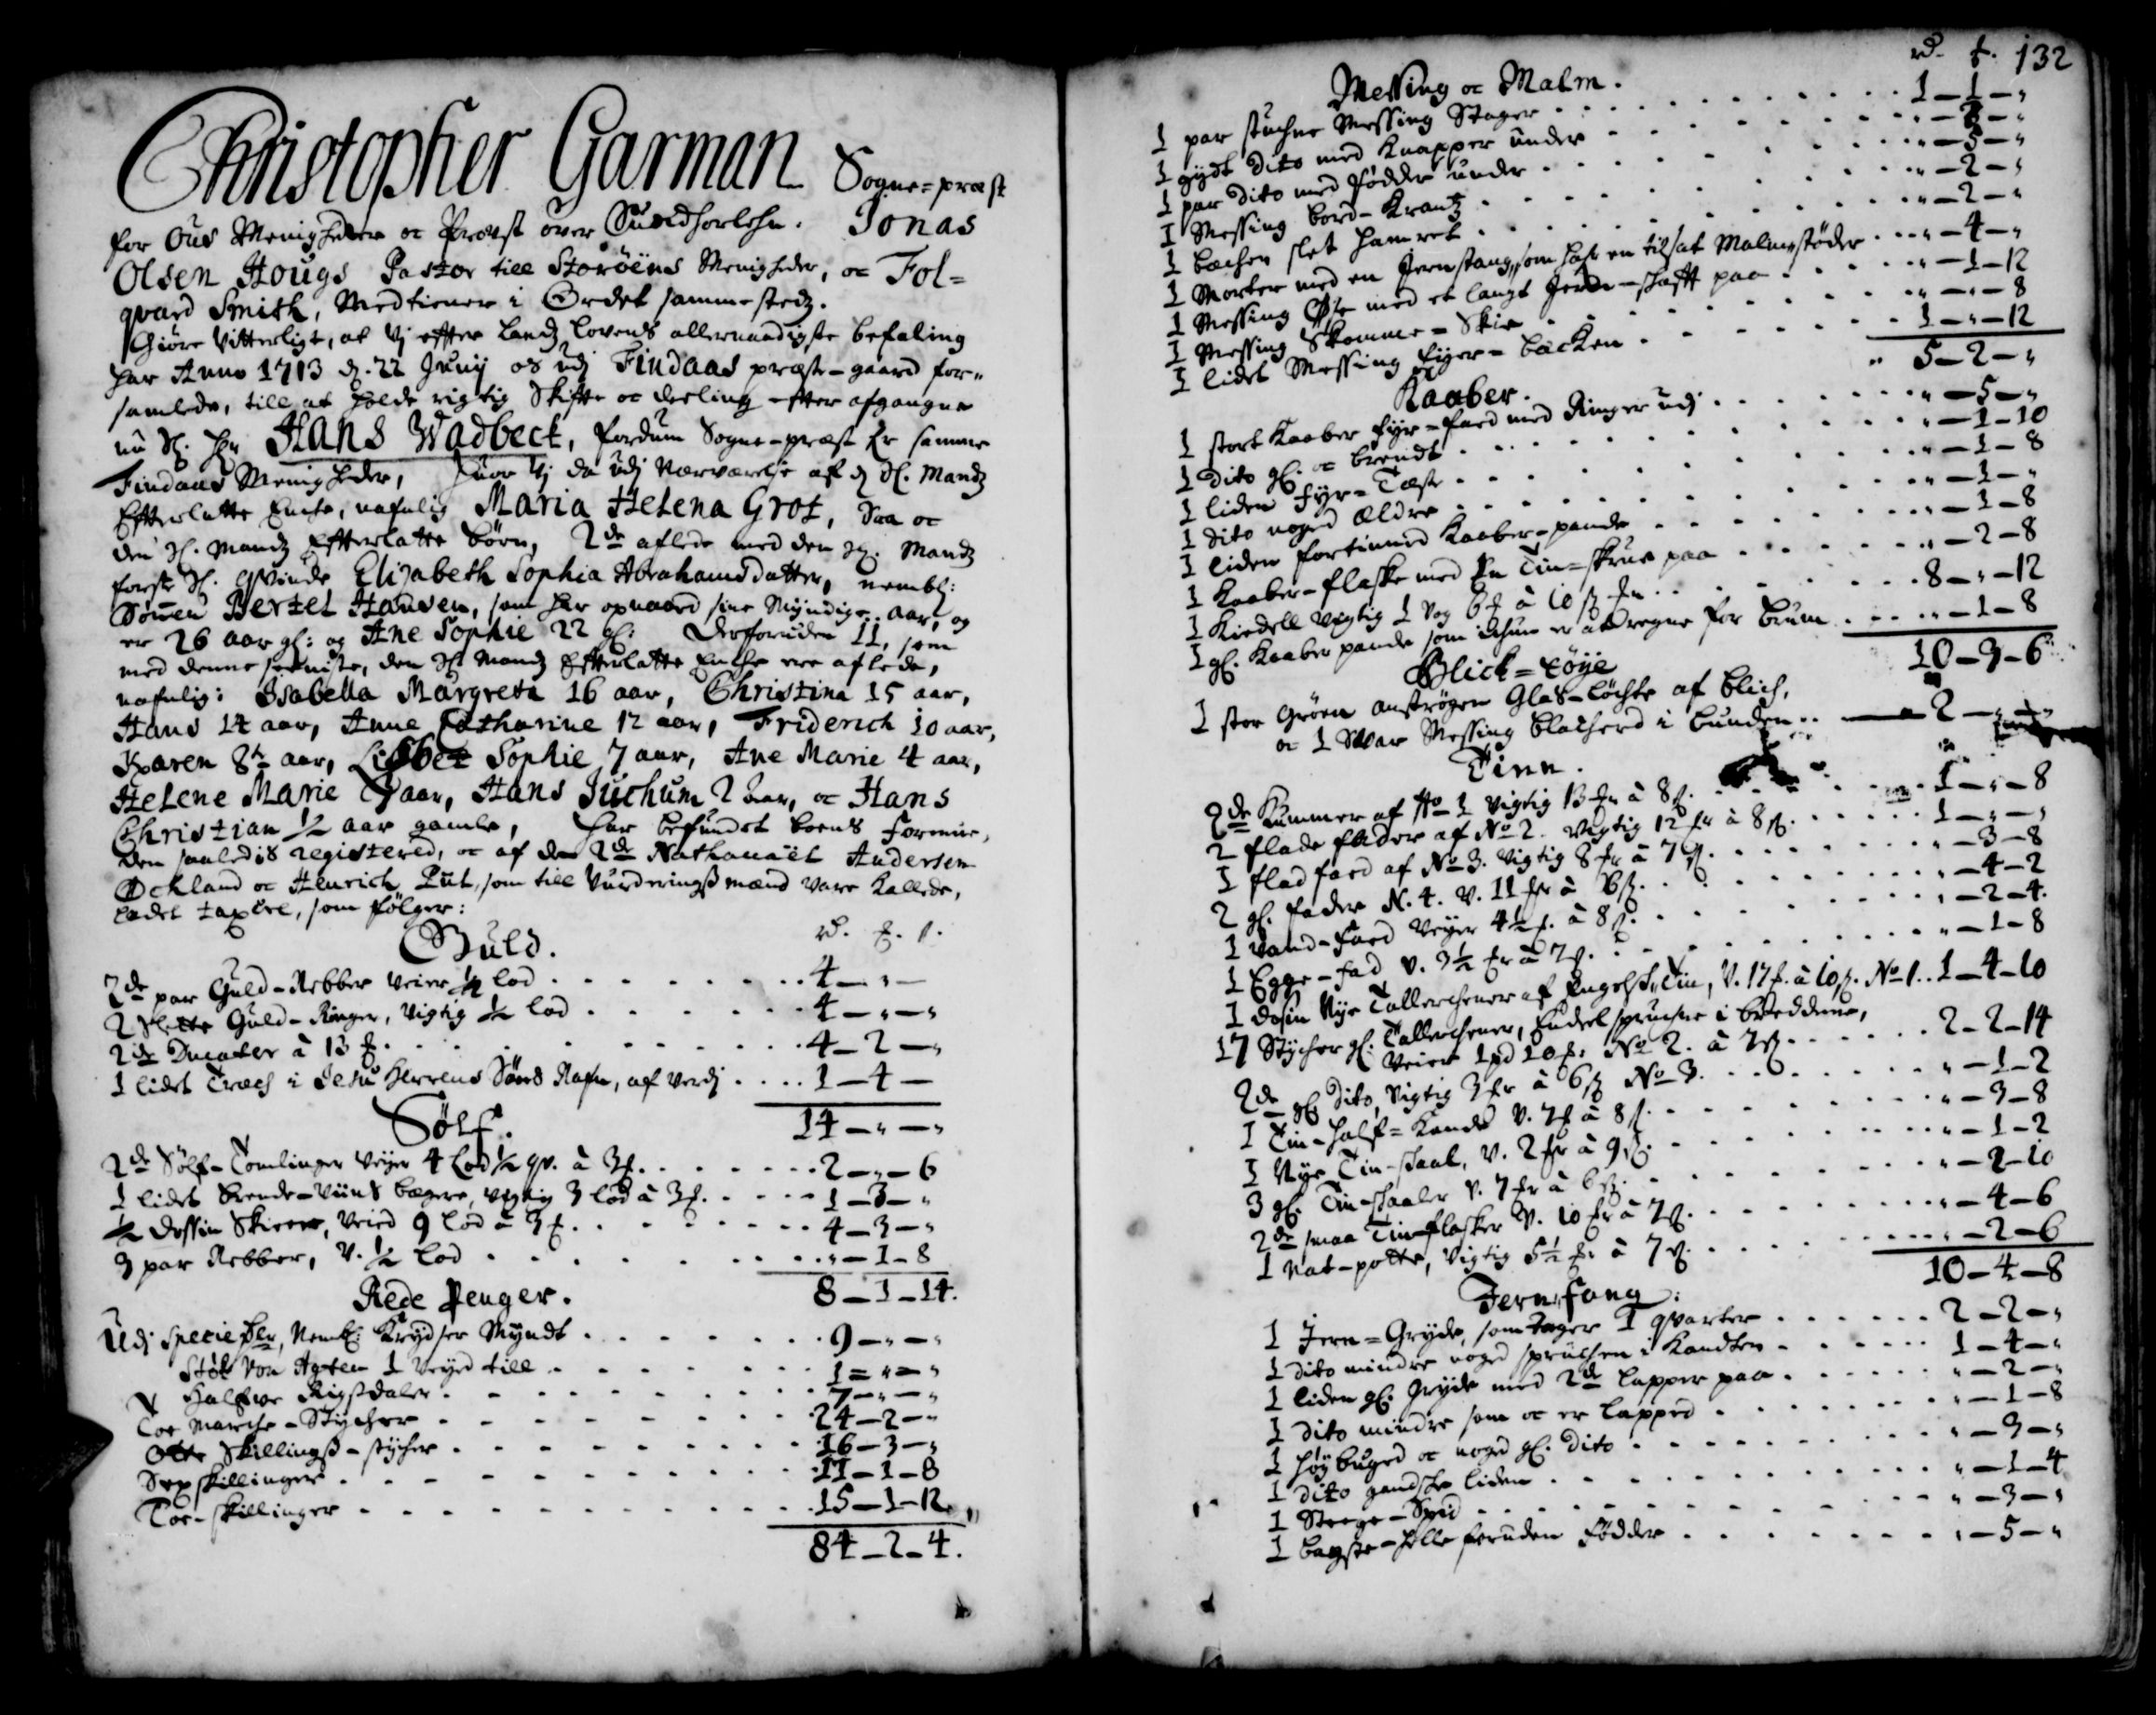 Christopher Garman Sogne=præst
for Ous Menigheder oc Provst over Sundhorlehn. Jonas
Olsen Hougs Pastor till Storöens Menigheder, oc Fol=
qvard Smith, Medtiener i Ordet sammestedz.
Giöre Vitterligt, at Vj efter Landz Lovens allernaadigste befaling
har Anno 1713 d. 22 Junij os udj Findaas præste-gaard for-
samlede, till at holde rigtig Skifte oc deeling efter afgangne
nu Sl. Hr Hans Wadbeck, fordum Sogne-præst for samme
Findaas Menigheder, huor Vj da udj Nærværelse af d Sl. Mandz
Efterlatte Enche, nafnlig Maria Helena Grot, Saa oc
den Sl. Mandz Efterlatte börn, 2de aflede med den Sl. Mandz
første Sl. Qvinde Elisabeth Sophia Abrahamsdatter, nembl:
Sönnen Bertel Hansen, som har opnaaed sine Myndige aar, og
er 26 aar gl: og Ane Sophie 22 gl: Desforuden 11, som
med denne sidste, den Sl. Mandz Efterlatte Enche ere aflede,
nafnlig: Isabella Margreta 16 aar, Christina 15 aar,
Hans 14 aar, Anne Catharine 12 aar, Friderich 10 aar,
Karen 8te aar, Lisbet Sophie 7 aar, Ane Marie 4 aar,
Helene Marie 3 aar, Hans Juchum 2 aar, oc Hans
Christian ½ aar gamle, har befundet boens Formue,
den saaledis registered, oc af de 2de Nathanaël Andersen
Öckland oc Henrich Put, som till Vurderingß mænd vare kallede,
ladet taxere, som fölger:
Guld. rd. ƒ. s.
2de par Guld-Rebber veier ½ lod . . . 4 — „ —
2 Slette Guld-Ringer, vigtig ½ lod . . . 4 — „ — „
2de Ducater à 13 ƒ. . . . 4 — 2 — „
1 lidet Træch i Jesu Herrens Söns Nafn, af verdj . . . 1 — 4 —
14 — „ — „
Sölf.
2de Sölf-Tomlinger veyer 4 Lod ½ qv. à 3ƒ. . . . 2 — „ — 6
1 lidet brende-Viins bægere, vigtig 3 lod à 3ƒ. . . . 1 — 3 — „
½ dossin Skieer, veied 9 lod à 3 ƒ. . . . 4 — 3 — „
3 par Rebber, v. ½ lod . . . „ — 1 — 8
8 — 1 — 14.
Rede Penger.
Udj Specie, Nembl: Krydser Myndt . . . 9 — „ — „
Stöt Von Agten 1 veyed till . . . 1 = „ = „
Halfve Rigsdaler . . . 7 — „ — „
Toe Marche-Stycher . . . 24 — 2 — „
Otte Skillingß-stycher . . . 16 — 3 — „
Sexskillinger . . . 11 — 1 — 8
Toe-skillinger . . . 15 — 1 — 12.
84 — 2 — 4.
rd. ƒ. 132
Messing oc Malm.
1 par stuchne Messing Stager . . . 1 — 1 — „
1 gydt Dito med Knapper under . . . „ — 3 — „
1 par Dito med födder under . . . „ — 3 — „
1 Messing bord-Krantz . . . „ — 2 — „
1 bechen slet hamret . . . „ — 2 — „
1 Morter med en Jernstang, som haf en tilsat Malmstöder . . . „ — 4 — „
1 Messing Öse med et langt Jern-skafft paa . . . „ — 1 — 12
1 Messing Skomme-Skie . . . „ — „ — 8
1 lidet Messing fyer-bæcken . . . 1 — „ — 12
5 — 2 — „
Kaaber.
1 stort Kaaber fyr-fad med Ringer udj . . . „ — 5 — „
1 Dito gl. oc brendt . . . „ — 1 — 10
1 liden Fyr-Tæst . . . „ — 1 — 8
1 Dito noged Ældre . . . „ — 1 — „
1 liden fortinned Kaaber-pande . . . „ — 1 — 8
1 Kaaber-flaske med En Tin-skrue paa . . . „ — 2 — 8
1 Kiedell vigtig 1 vog 6 à 10 . . . 8 — „ — 12
1 gl. Kaaber pande som ichun er at regne for bruun . . . „ — 1 — 8
10 — 3 — 6
Blick=töye
1 stor Gröen anströgen Glas-löchte af blich,
oc 1 Svar Messing blacherd i bunden . . . 2 — „ — „
Tinn.
2de Kummer af No 1 vigtig 13 à 8 . . . 1 — „ — 8
2 flade fader af No 2. vigtig 12 à 8 . . . 1 — „ — „
1 flad faed af No 3. vigtig 8 à 7 . . . „ — 3 — 8
2 gl. fader N. 4. V. 11 à 6 . . . „ — 4 — 2
1 Vand-Faed Veyer 4½ à 8 . . . „ — 2 — 4.
1 Egge-fad V. 3½ à 7 . . . „ — 1 — 8
1 dosin Nye Tallerchener af Engelsk Tin, V. 17 à 10. No 1. . 1 — 4 — 10
17 Stycher gl: Tallerchener, Endeel sprucne i bredderne,
Veier 1 pd 10 No 2. à 7 . . . 2 — 2 — 14
2de gl Dito, vigtig 3 à 6 No 3. . . . „ — 1 — 2
1 Tin-half-Kande V. 7 à 8 . . . „ — 3 — 8
1 Nye Tin-skaal, V. 2 à 9 . . . „ — 1 — 2
3 gl. Tin-skaaler V. 7 à 6 . . . „ — 2 — 10
2de smaa Tin-flasker V. 10 à 7 . . . „ — 4 — 6
1 Nat-potte, vigtig 5½ à 7 . . . „ — 2 — 6
10 — 4 — 8
Jernfang:
1 Jern-Gryde, som tager 1 qvarter . . . 2 — 2 — „
1 dito mindre noged sprucken i Kandten . . . 1 — 4 — „
1 liden gl. Gryde med 2de lapper paa . . . „ — 2 — „
1 dito mindre som oc er lapped . . . „ — 1 — 8
1 höybuged oc noged gl. Dito . . . „ — 3 — „
1 dito gandske liden . . . „ — 1 — 4
1 Steege-Spid . . . „ — 3 — „
1 bagste-helle foruden Födder . . . „ — 5 — „